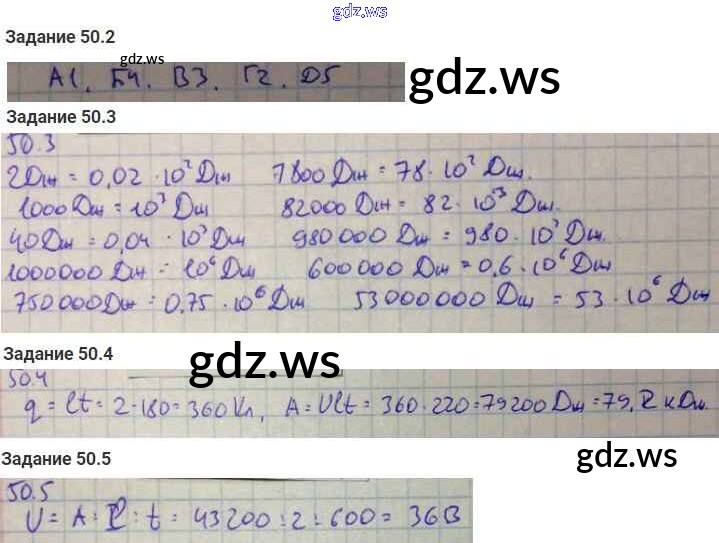 gdz.ws
Задание 50.2
gdz.ws
А1, Б4, В3, Г2, D5
gdz.ws
Задание 50.3
50.3
2Дж = 0,02 · 10² Дж 7800 Дж = 78 · 10² Дж.
1000 Дж = 10³ Дж 82000 Дж = 82 · 10³ Дж.
40 Дж = 0,04 · 10³ Дж 980 000 Дж = 980 · 10³ Дж.
1000000 Дж = 10⁶ Дж 600 000 Дж = 0,6 · 10⁶ Дж
750 000 Дж = 0,75 · 10⁶ Дж 53 000 000 Дж = 53 · 10⁶ Дж
Задание 50.4
gdz.ws
50.4
q = It = 2 · 180 = 360 Кл, A = UIt = 360 · 220 = 79200 Дж = 79,2 кДж.
Задание 50.5
gdz.ws
50.5
U = A : I : t = 43200 : 2 : 600 = 36В